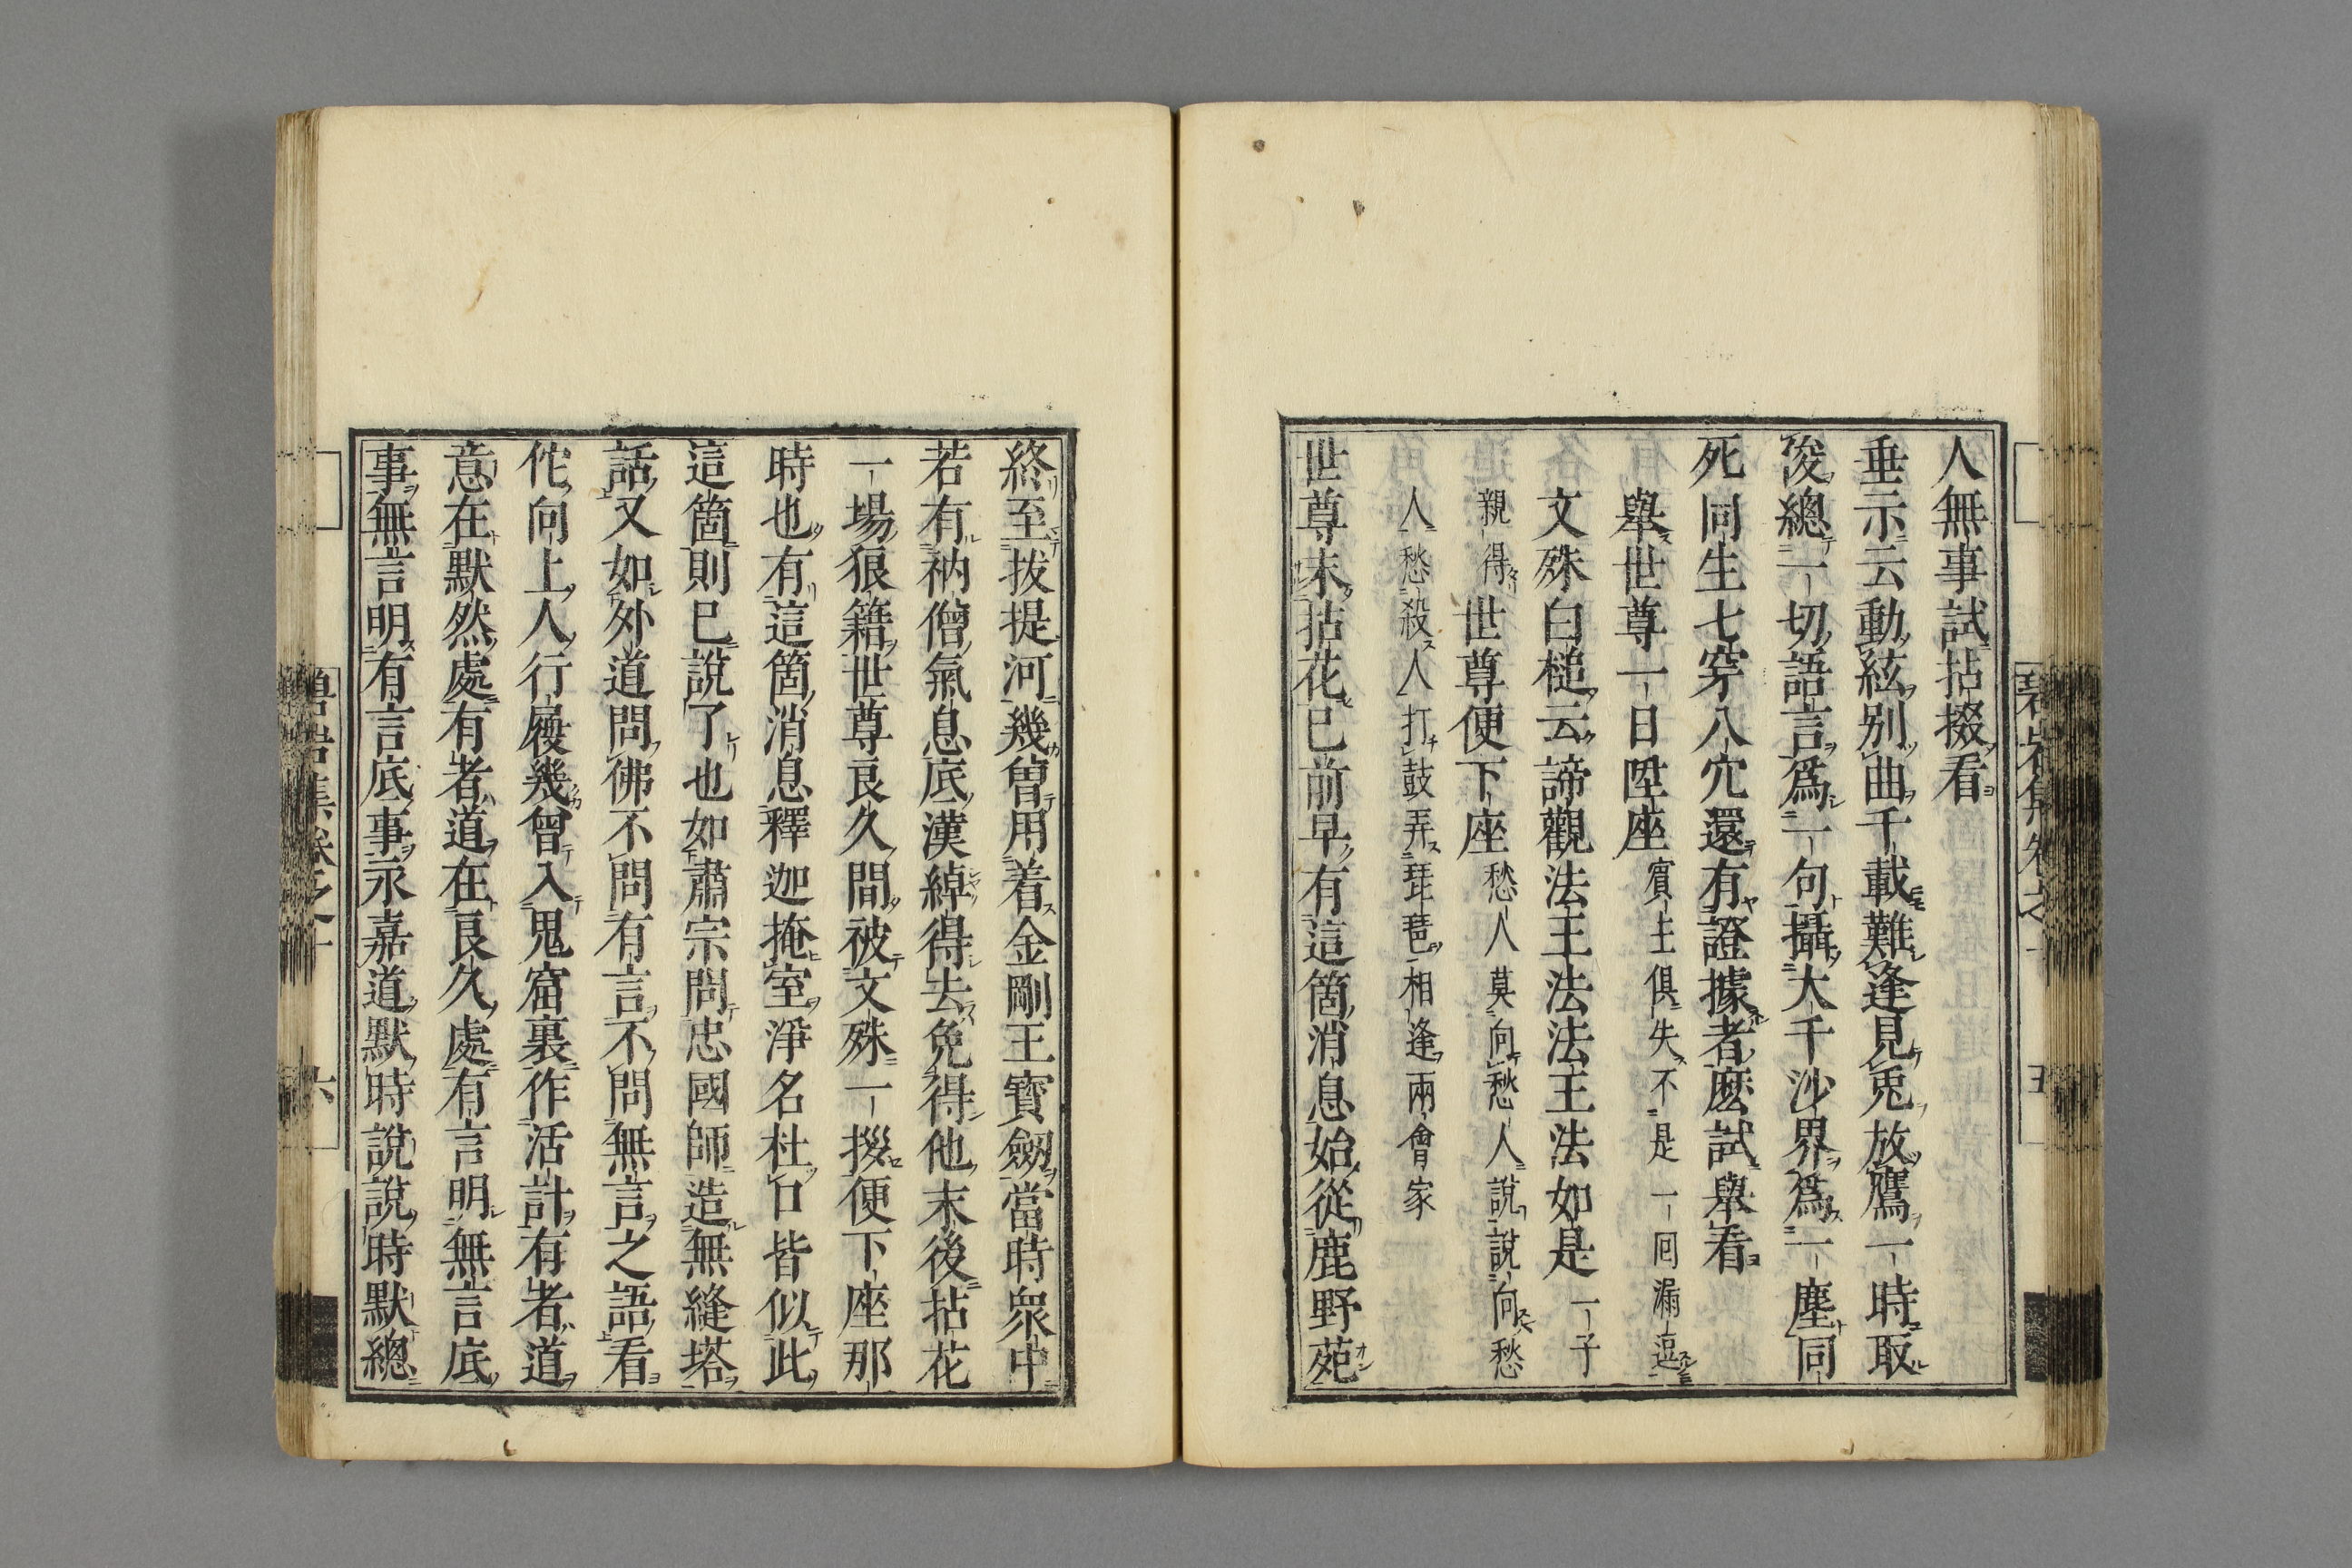 人無事試拈掇看
垂示云動絃別曲千載難逢見兎放鷹一時取
俊總一切語言爲一句攝大千沙界爲一塵同
死同生七穿八穴還有證據者麽試舉看
舉世尊一日陞座賓主俱失不是一回漏逗
文殊白槌云諦觀法王法法王法如是一子
親得世尊便下座愁人莫向愁人說說向愁
人愁殺人打鼓弄琵琶相逢兩會家
世尊未拈花已前早有這箇消息始從鹿野苑
終至拔提河幾曾用着金剛王寶劒當時衆中
若有衲僧氣息底漢綽得去免得他末後拈花
一場狼籍世尊良久間被文殊一拶便下座那
時也有這箇消息釋迦掩室淨名杜口皆似此
這箇則已說了也如肅宗問忠國師造無縫塔
話又如外道問佛不問有言不問無言之語看
佗向上人行履幾曾入鬼窟裏作活計有者道
意在默然處有者道在良久處有言明無言底
事無言明有言底事永嘉道默時說說時默總
六